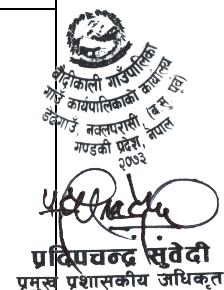 बौदीकाली गाउँपालिका
गाउँ कार्यपालिकाको कार्यालय
डेढगाउँ, नवलपरासी (ब.सु. पूर्व)
गण्डकी प्रदेश, नेपाल
२०७३
प्रदिपचन्द्र सुवेदी
प्रमुख प्रशासकीय अधिकृत